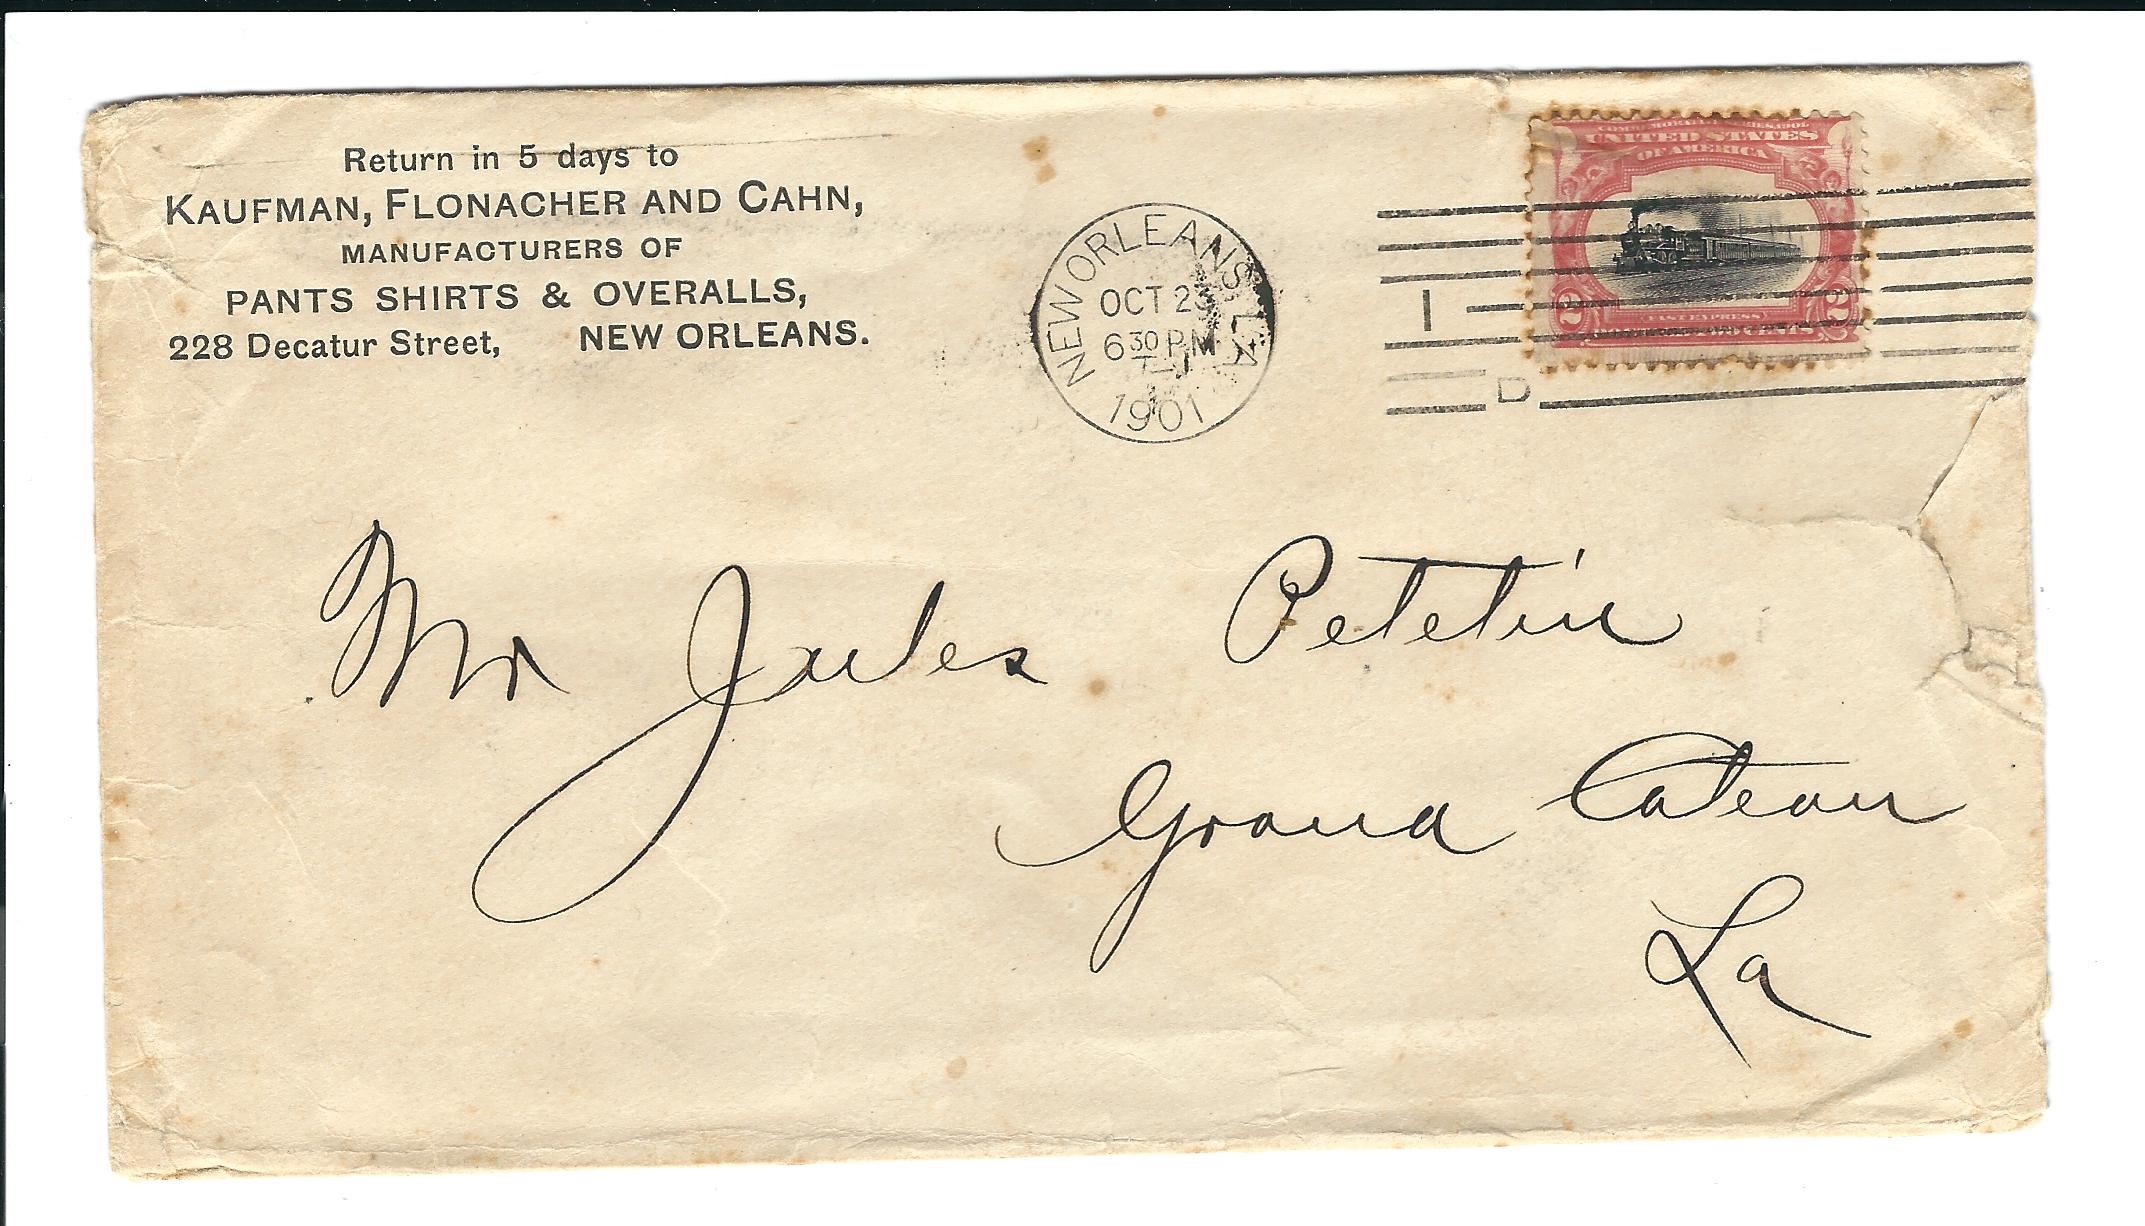 Return in 5 days to
KAUFMAN, FLONACHER AND CAHN,
MANUFACTURERS OF
PANTS SHIRTS & OVERALLS,
228 Decatur Street, NEW ORLEANS.
NEW ORLEANS, LA.
OCT 23
6 30 PM
1901
1
D
UNITED STATES
OF AMERICA
2 2
FAST EXPRESS
Mr Jules Petetin
Grand Coteau
La